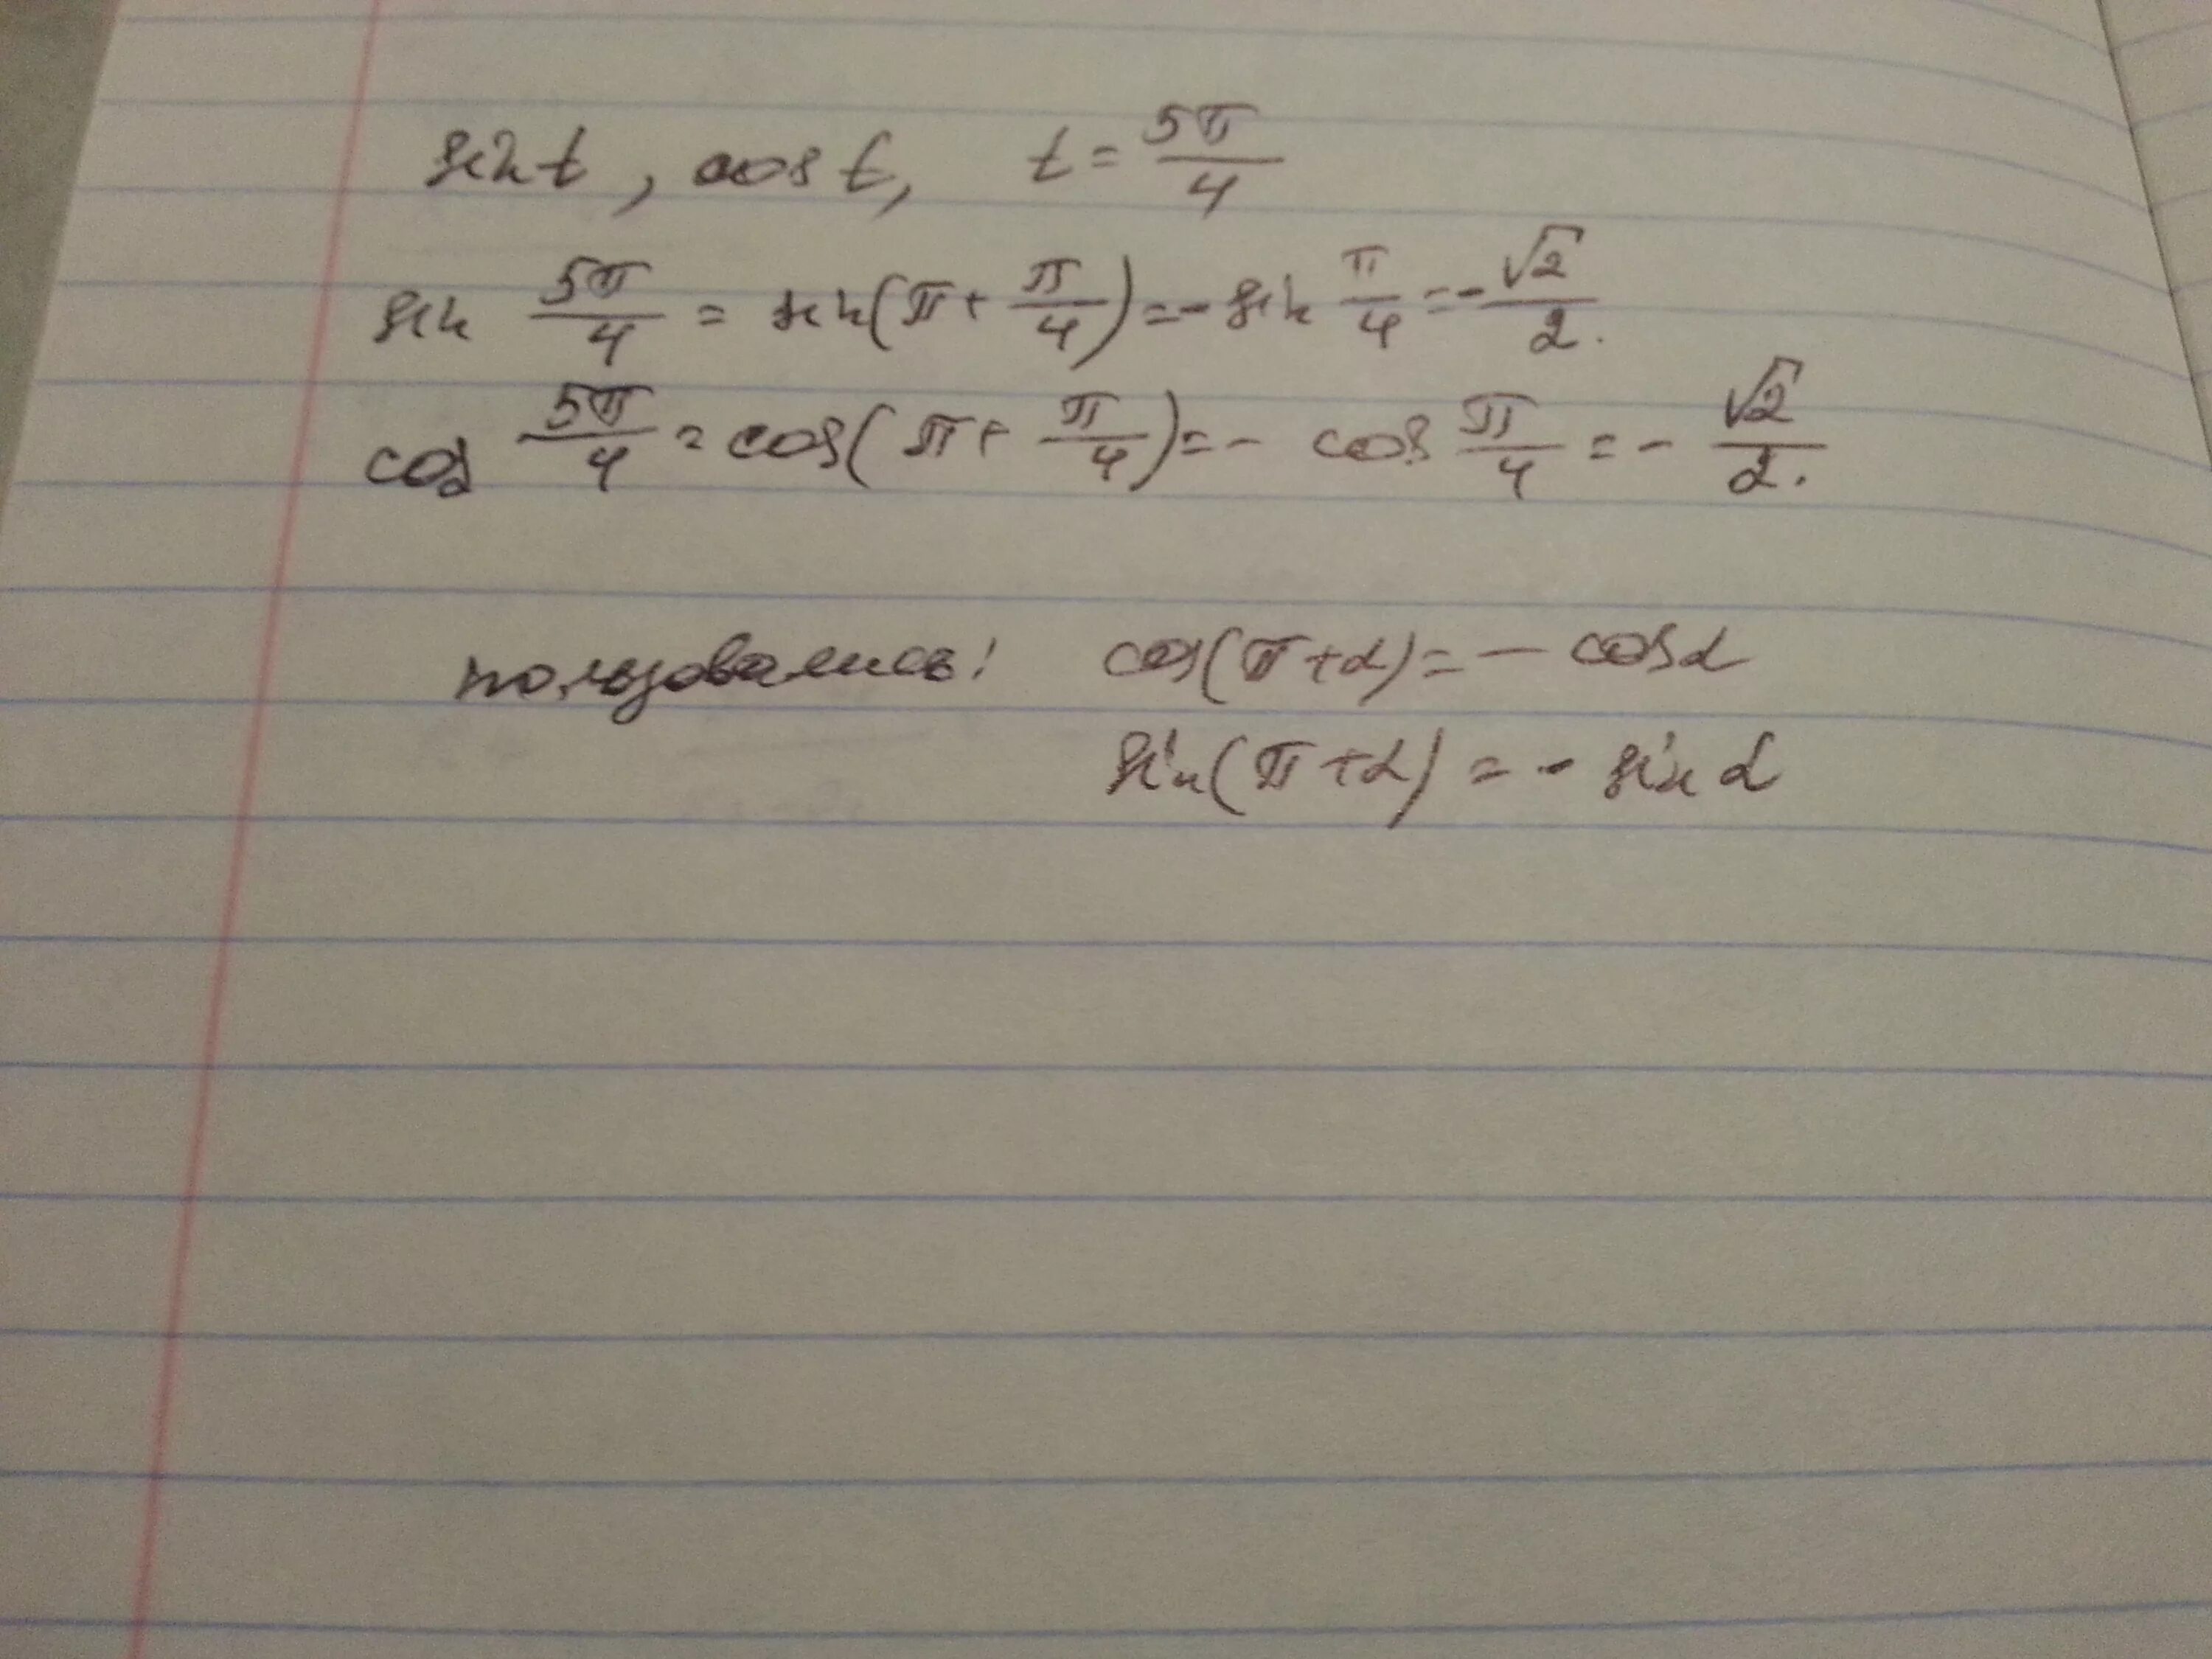 sin t, cos t, t = 5π/4
sin 5π/4 = sin(π + π/4) = - sin π/4 = - √2/2.
cos 5π/4 = cos(π + π/4) = - cos π/4 = - √2/2.
пользовались: cos(π + α) = - cos α
sin(π + α) = - sin α